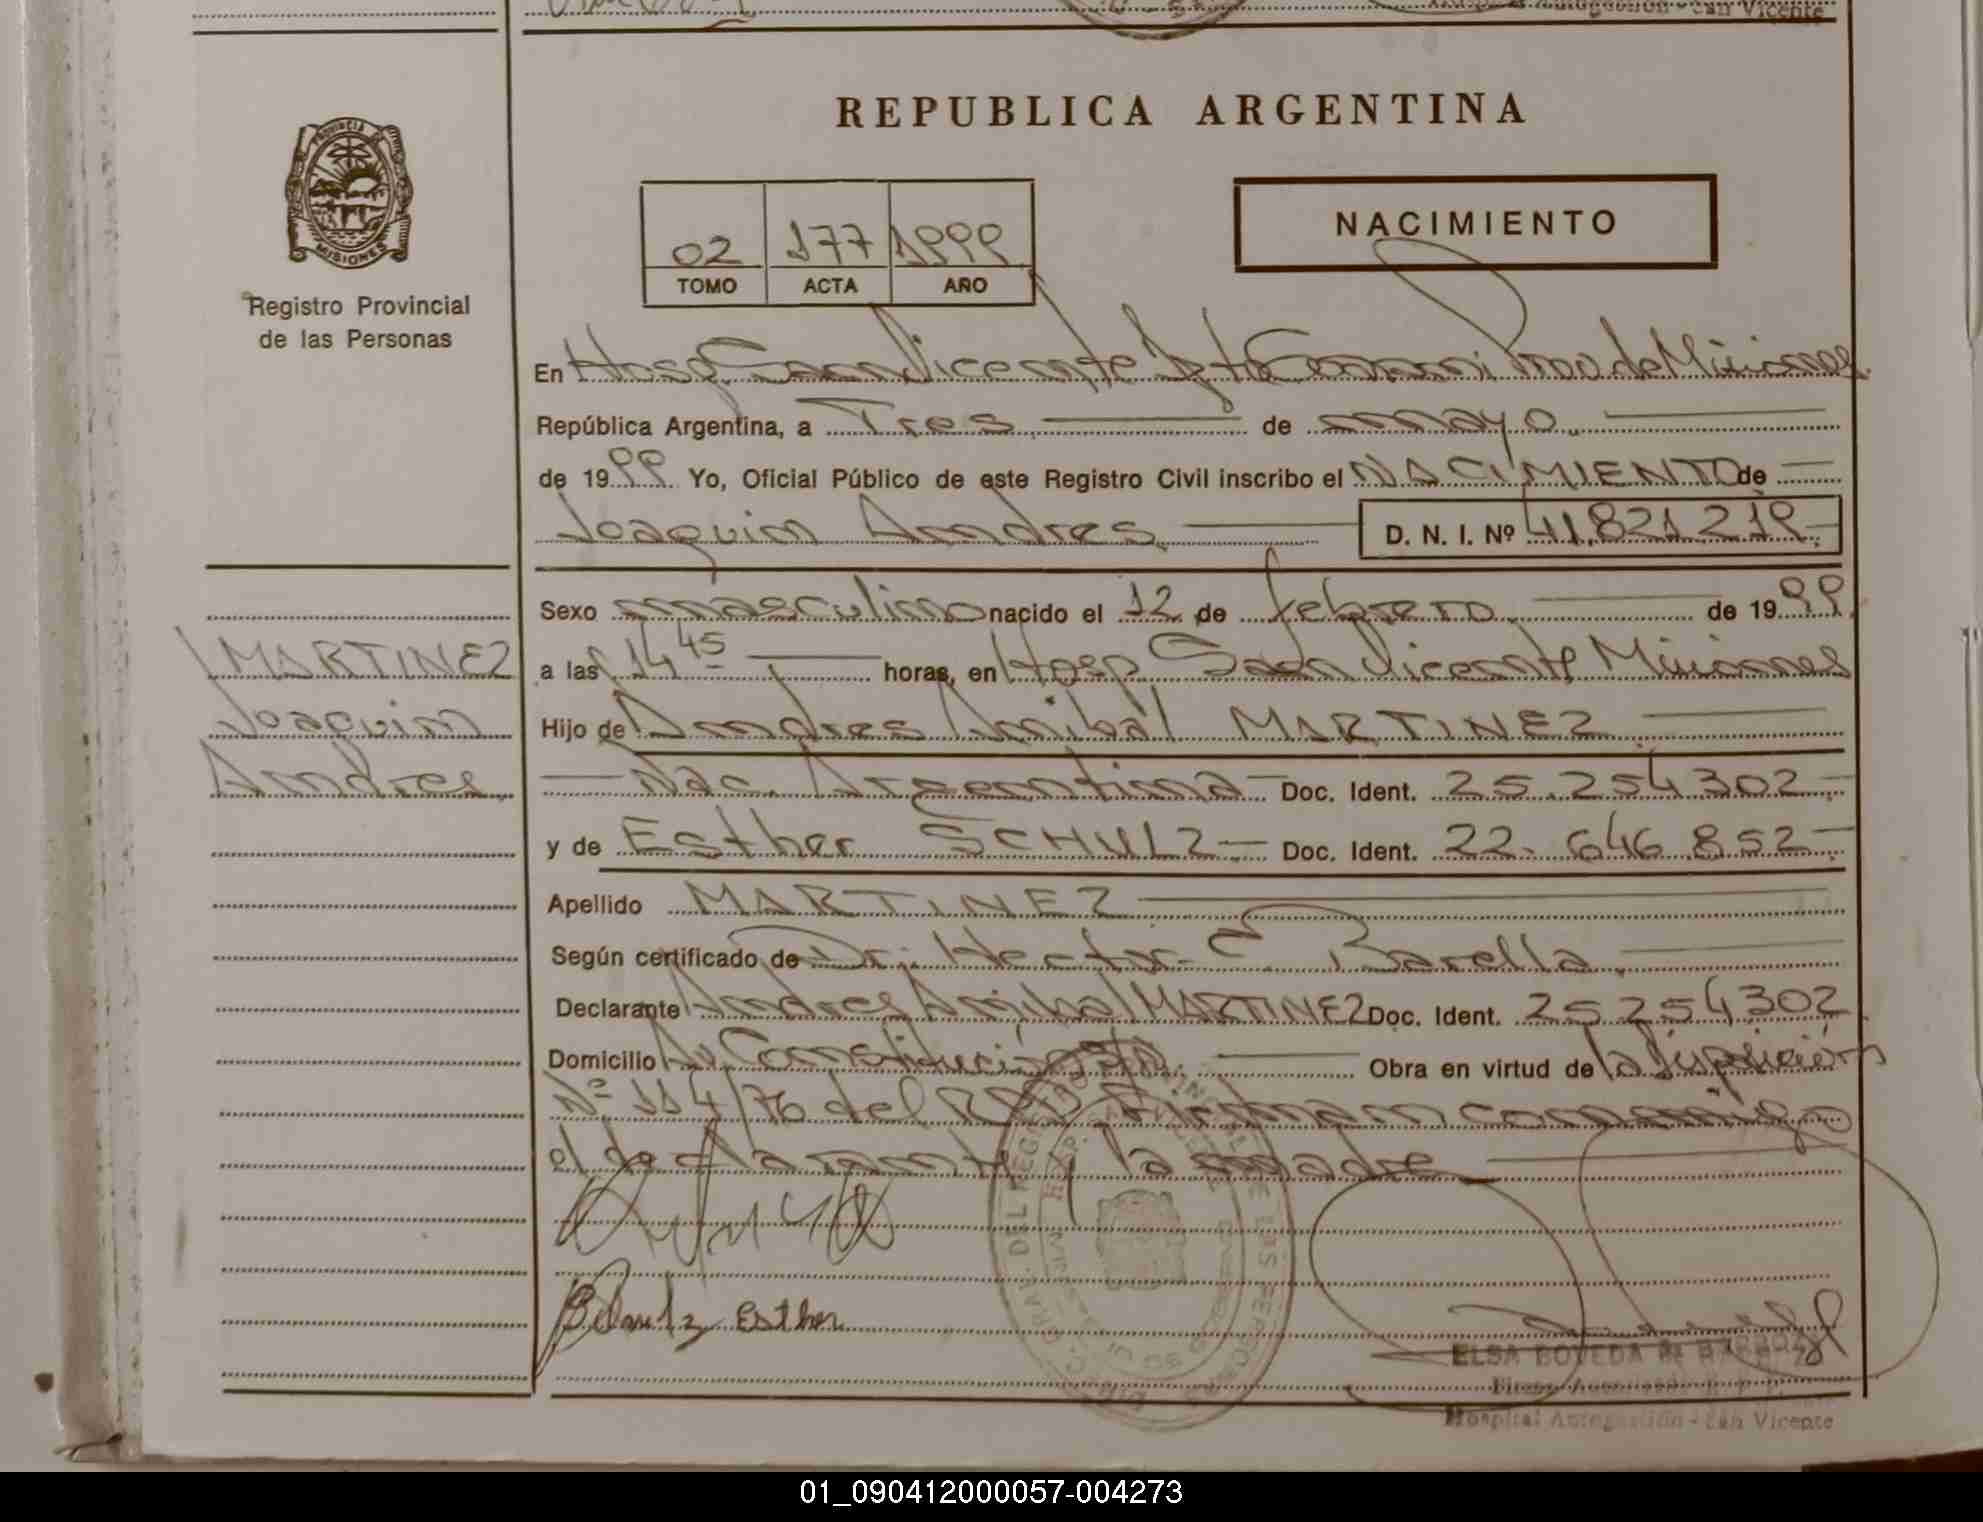 San Vicente
REPUBLICA ARGENTINA
PROVINCIA DE
MISIONES
Registro Provincial
de las Personas
NACIMIENTO
02 177 1999
TOMO ACTA AÑO
En Hosp. San Vicente Dpto Guarani Prov de Misiones
República Argentina, a Tres de mayo
de 1999 Yo, Oficial Público de este Registro Civil inscribo el NACIMIENTO de
Joaquim Andres D. N. I. Nº 41.821.219
Sexo masculino nacido el 12 de febrero de 1999
MARTINEZ
a las 14 45 horas, en Hosp San Vicente Misiones
Joaquim
Hijo de Andres Anibal MARTINEZ
Andres
Nac. Argentina Doc. Ident. 25.254302
y de Esther SCHULZ Doc. Ident. 22.646.852
Apellido MARTINEZ
Según certificado de Dr. Hector E. Barella
Declarante Andres Anibal MARTINEZ Doc. Ident. 25254302
Domicilio Av Constitución S/N. Obra en virtud de la Disposición
Nº 114/76 del RPP Firman conmigo
el declarante y la madre
Schulz Esther
ELSA BOVEDA DE
Hospital Autogestión - San Vicente
01_090412000057-004273